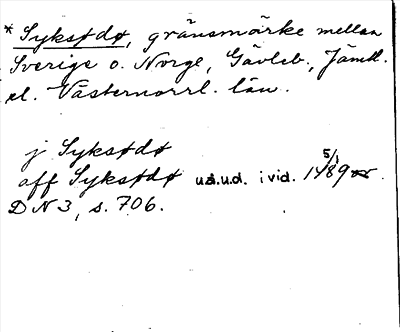 * Syksødø, gränsmärke mellan
Sverige o. Norge, Gävleb., Jämtl.
el. Västernorrl. län.
j Syksødø
aff Syksødø u.d.u.d. i vid. 5/1 1489
DN 3, s. 706.